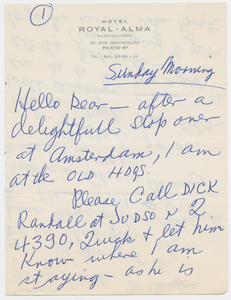 1
HOTEL
ROYAL-ALMA
35, RUE JEAN-GOUJON
PARIS-8e
Sunday Morning
Hello Dear — after a
delightfull stop over
at Amsterdam, I am
at the OLD HDQS.
Please Call DICK
Randall at JUDSON 2
4390, Quick & let him
Know where I am
staying - as he is